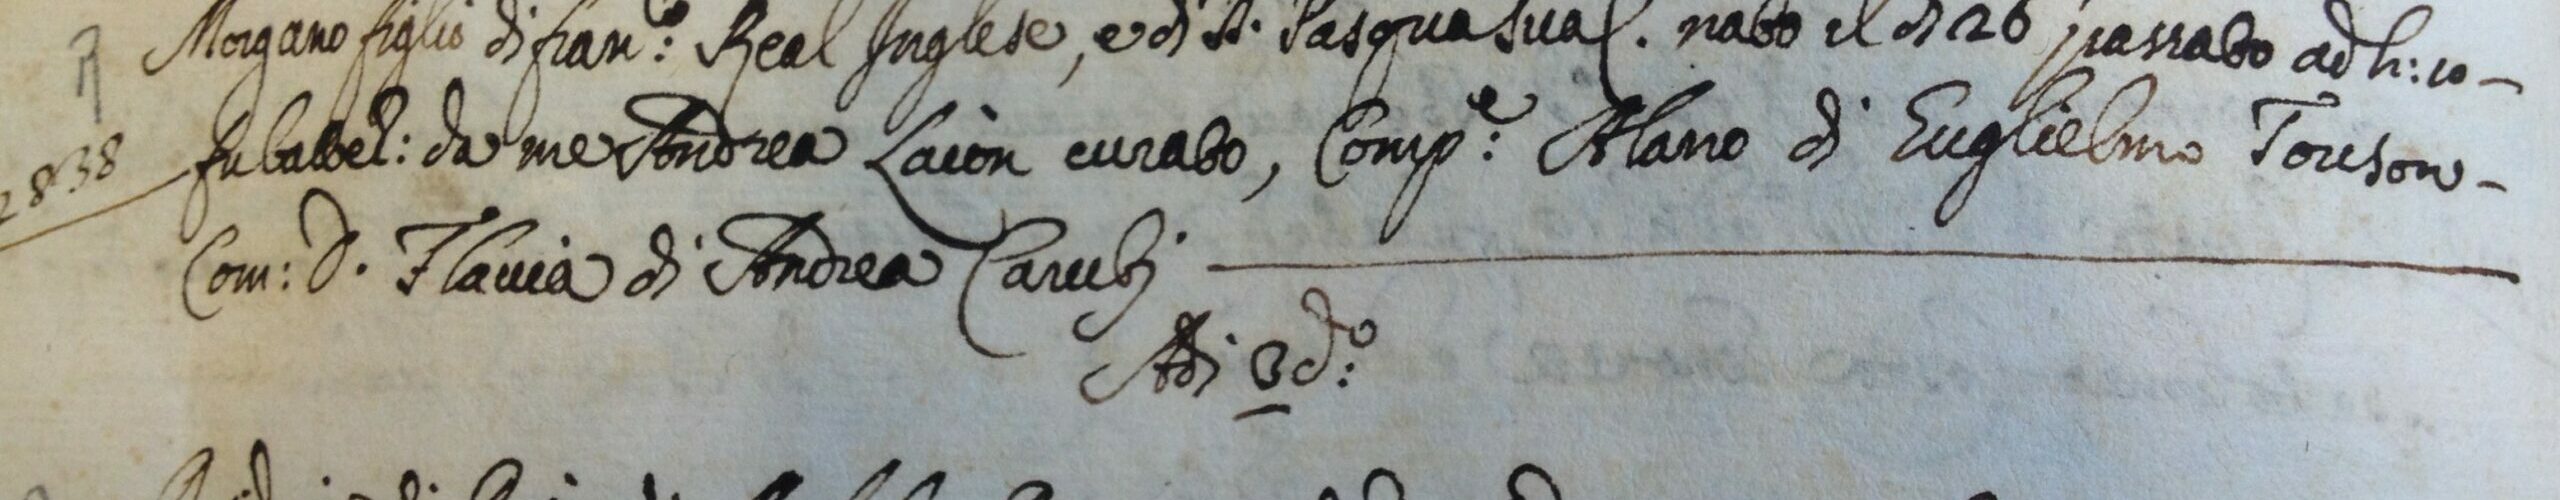 Morgano figlio di fran.co: Real Inglese, e di D. Pasqua sua C. nato il di 26 passato ad h: 10 -
2838 fu battez: da me Andrea Laiòn curato, Comp.e: Alano di Guglielmo Touson -
Com: D. Flavia di Andrea Carubj
Adi 3 d.o: